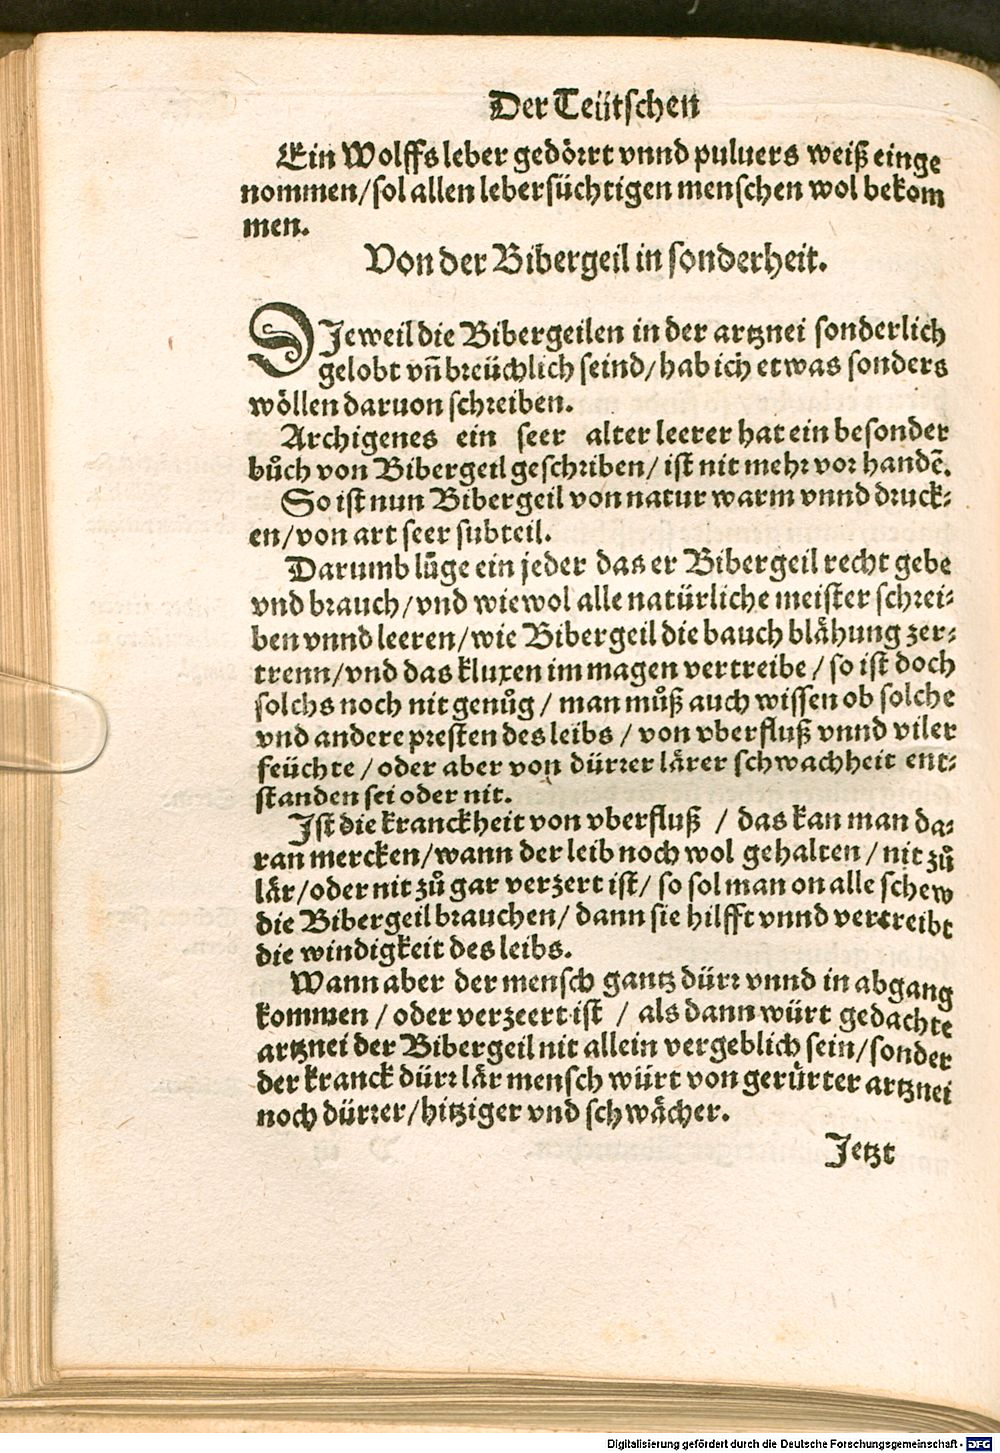 Der Teütschen
Ein Wolffs leber gedörrt vnnd puluers weiß einge
nommen/sol allen lebersüchtigen menschen wol bekom
men.
Von der Bibergeil in sonderheit.
DJeweil die Bibergeilen in der artznei sonderlich
gelobt vñ breüchlich seind/hab ich etwas sonders
wöllen daruon schreiben.
Archigenes ein seer alter leerer hat ein besonder
bůch von Bibergeil geschriben/ist nit mehr vor handē.
So ist nun Bibergeil von natur warm vnnd druck-
en/von art seer subteil.
Darumb lůge ein jeder das er Bibergeil recht gebe
vnd brauch/vnd wiewol alle natürliche meister schrei-
ben vnnd leeren/wie Bibergeil die bauch blähung zer-
trenn/vnd das kluxen im magen vertreibe/so ist doch
solchs noch nit genůg/man můß auch wissen ob solche
vnd andere presten des leibs/von vberfluß vnnd viler
feüchte/oder aber von dürrer lärer schwachheit ent-
standen sei oder nit.
Jst die kranckheit von vberfluß/das kan man da-
ran mercken/wann der leib noch wol gehalten/nit zů
lär/oder nit zů gar verzert ist/so sol man on alle schew
die Bibergeil brauchen/dann sie hilfft vnnd vertreibt
die windigkeit des leibs.
Wann aber der mensch gantz dürr vnnd in abgang
kommen/oder verzeert ist/als dann würt gedachte
artznei der Bibergeil nit allein vergeblich sein/sonder
der kranck dürr lär mensch würt von gerürter artznei
noch dürrer/hitziger vnd schwächer.
Jetzt
Digitalisierung gefördert durch die Deutsche Forschungsgemeinschaft - DFG